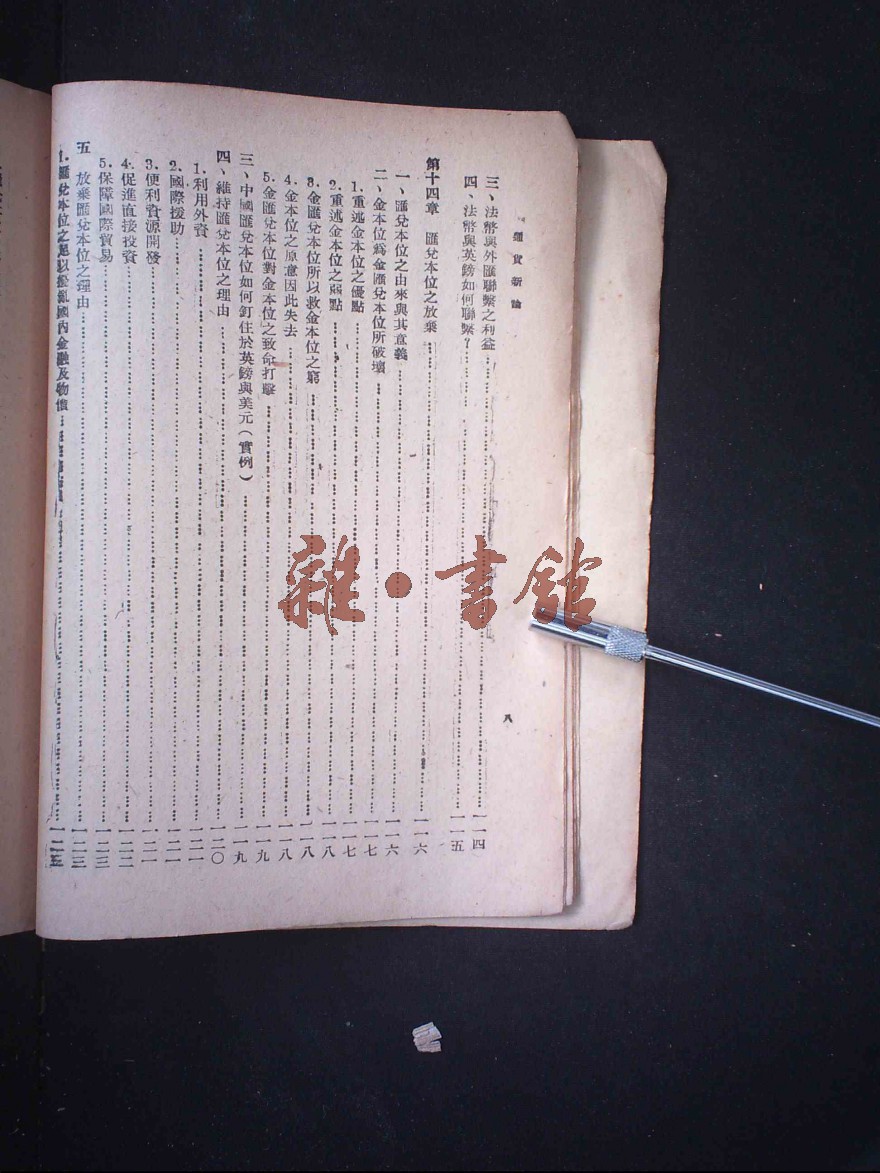 通貨新論
八
三、法幣與外匯聯繫之利益……一一四
四、法幣與英鎊如何聯繫?……一一五
第十四章 匯兌本位之放棄……一一六
一、匯兌本位之由來與其意義……一一六
二、金本位爲金匯兌本位所破壞……一一七
1.重述金本位之優點……一一七
2.重述金本位之弱點……一一八
3.金匯兌本位所以救金本位之窮……一一八
4.金本位之原意因此失去……一一八
5.金匯兌本位對金本位之致命打擊……一一九
三、中國匯兌本位如何釘住於英鎊與美元(實例)……一一九
四、維持匯兌本位之理由……一二〇
1.利用外資……一二一
2.國際援助……一二一
3.便利資源開發……一二一
4.促進直接投資……一二二
5.保障國際貿易……一二三
五 放棄匯兌本位之理由……一二三
1.匯兌本位之足以擾亂國內金融及物價……一二五
雜·書館